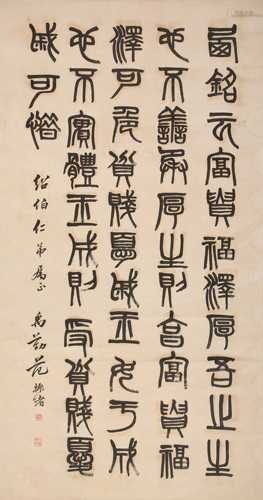 西銘云富貴福澤厚吾之生
也不善承厚生則富貴福
澤可貧賤憂戚玉女于成
也不實體玉成則受貧賤憂
戚可
紹伯仁弟屬正
禹勤范振緒